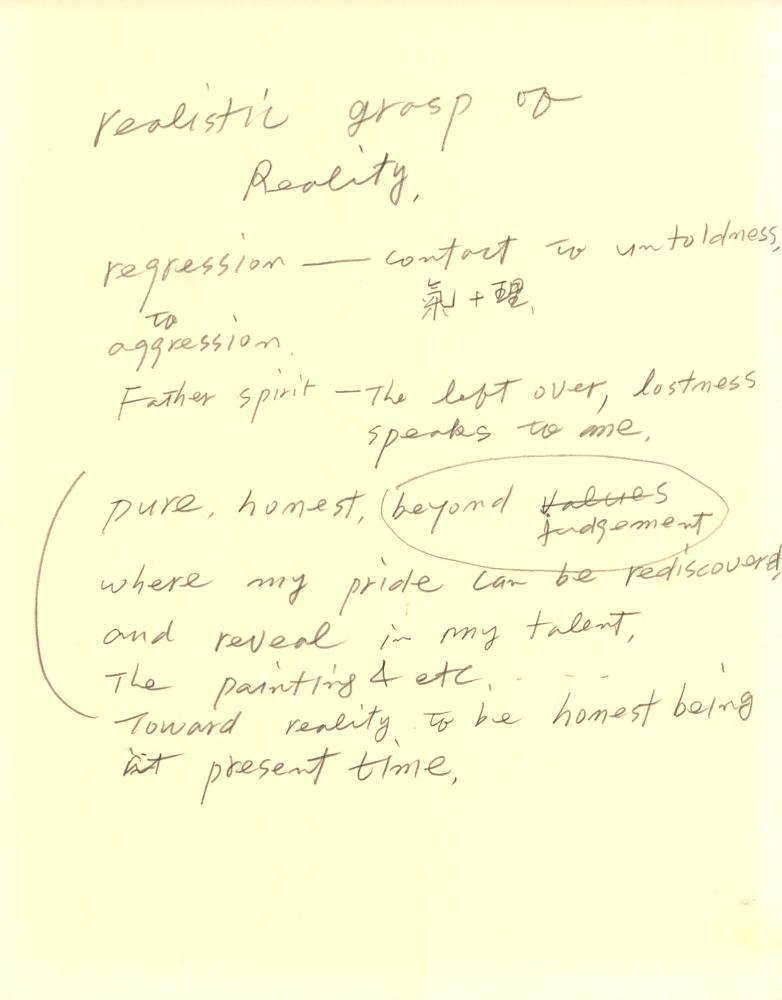 realistic grasp of
Reality,
regression — contact to untoldness,
氣 + 理,
to
aggression.
Father spirit — The left over, lostness
speaks to me.
pure, honest, beyond values
judgement
where my pride can be rediscoverd,
and reveal in my talent,
The painting & etc. - - - -
Toward reality to be honest being
at present time,